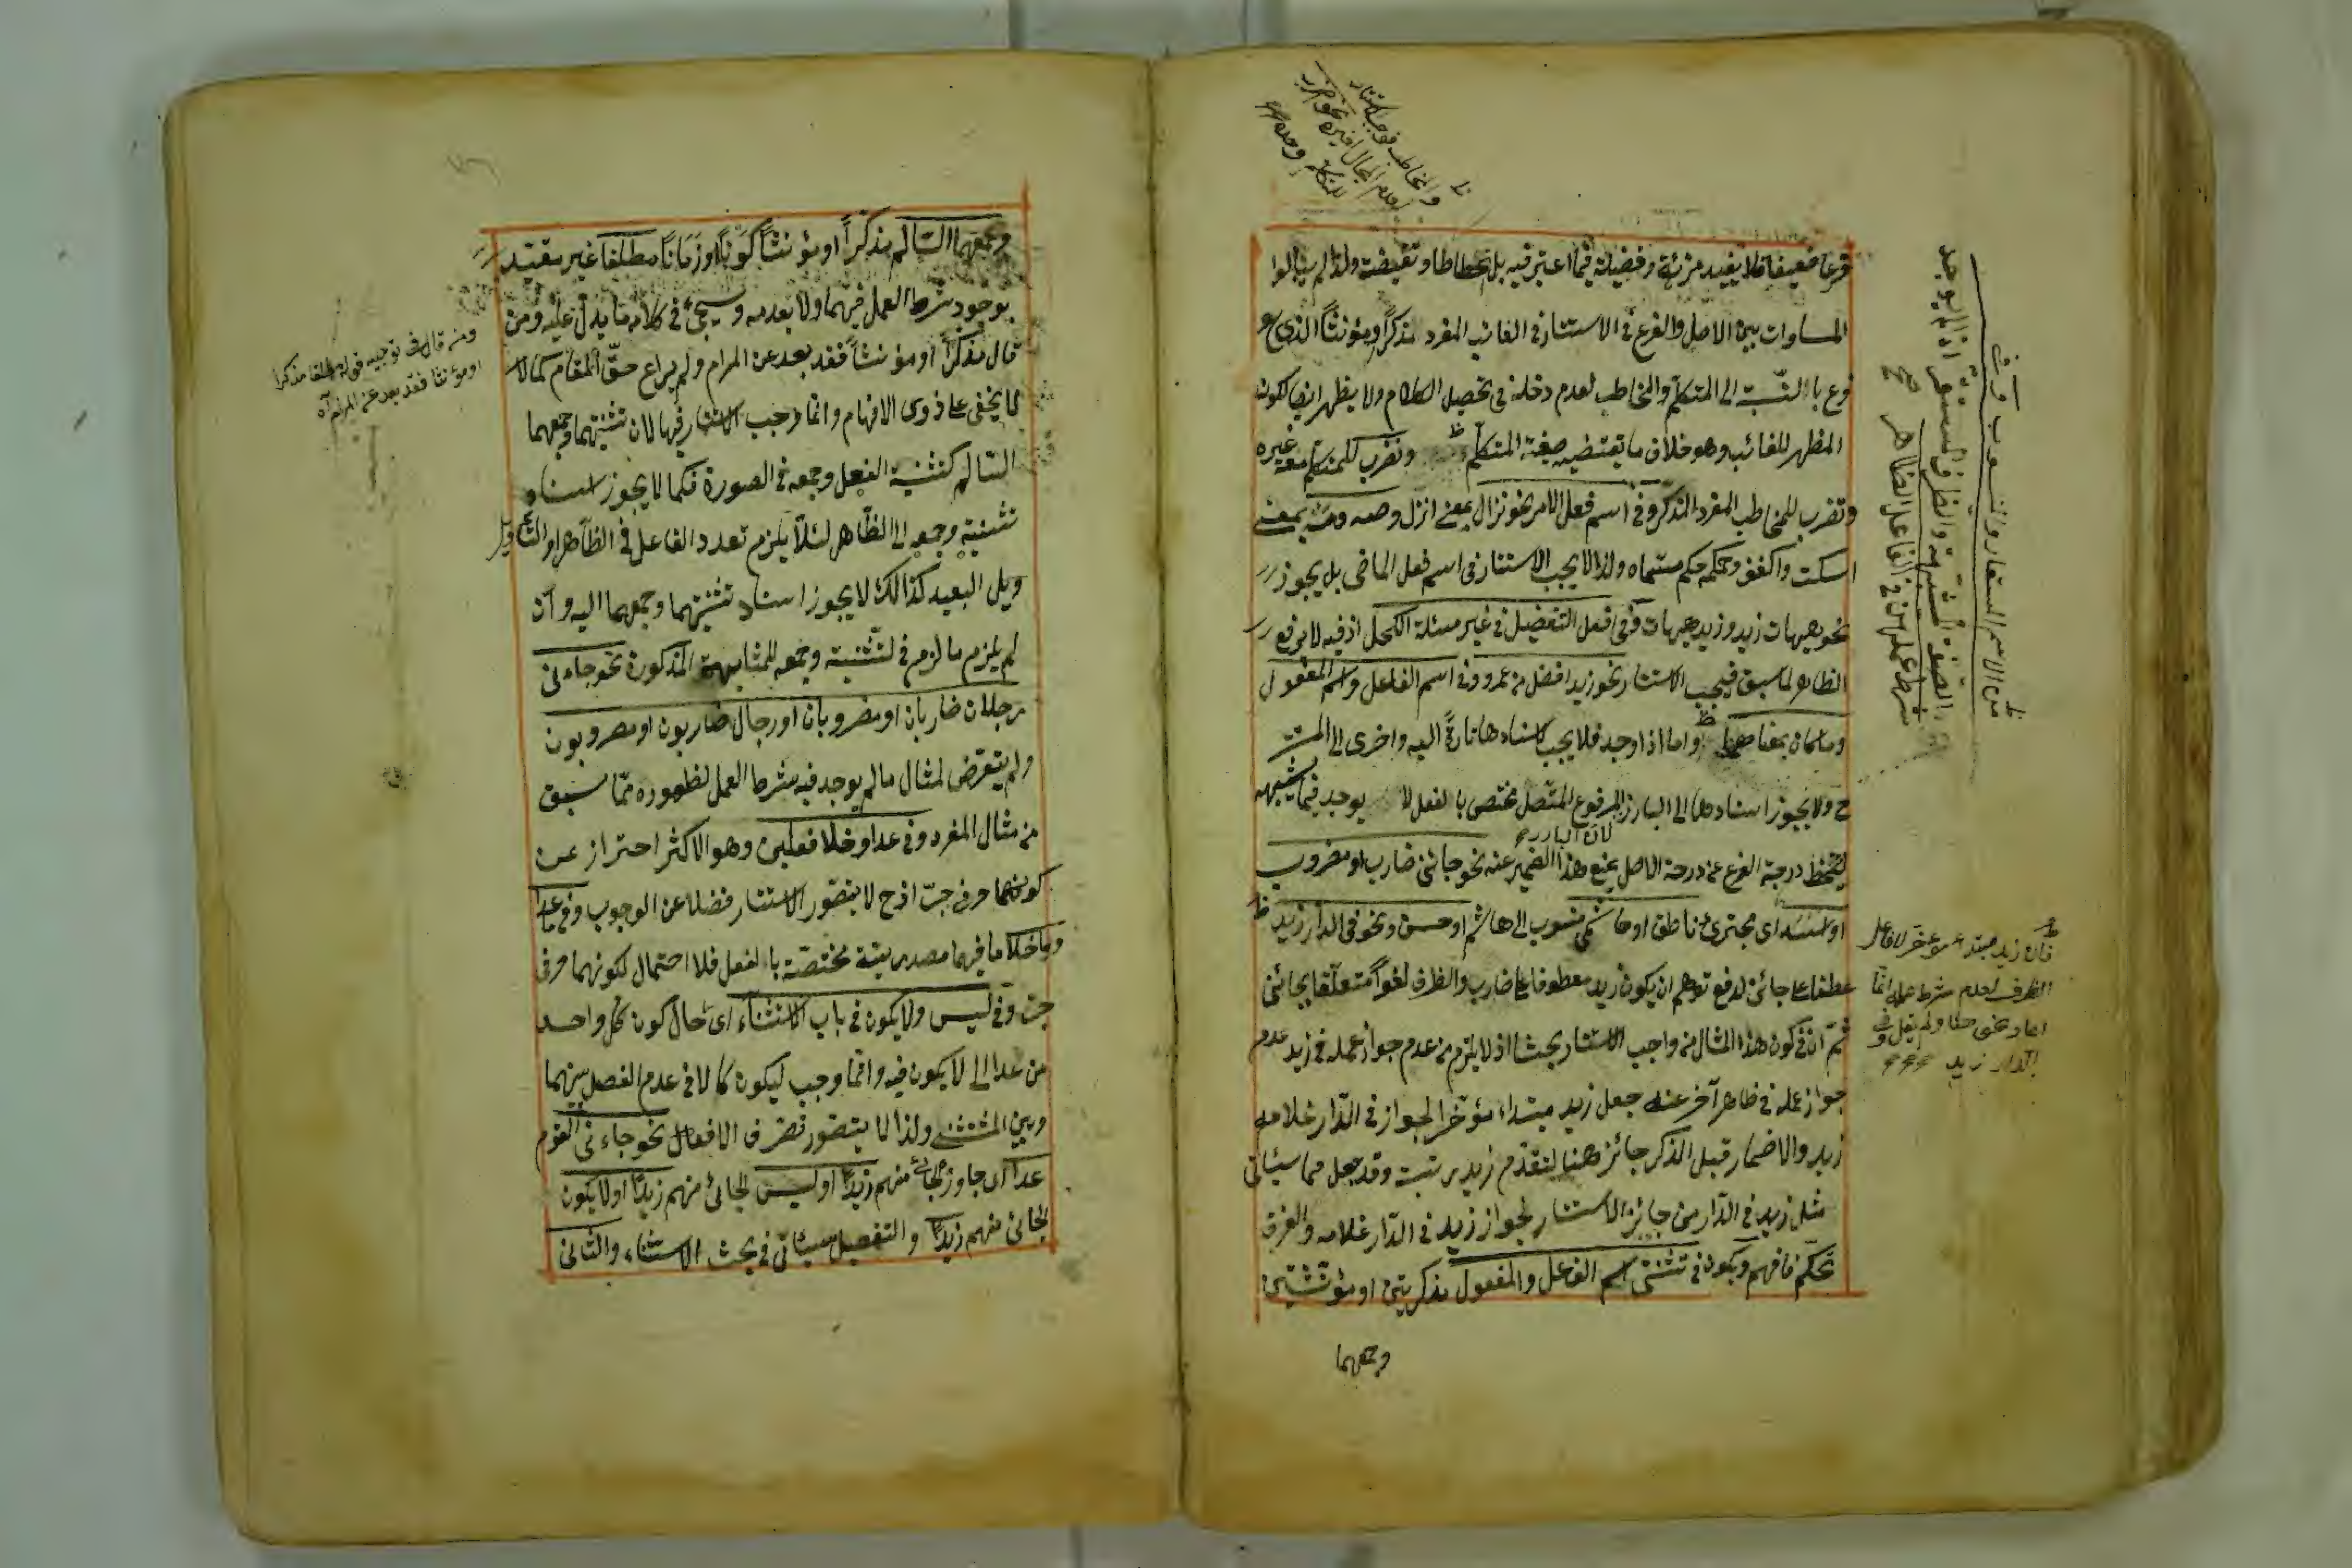 فرعا ضعيفا فلا يفيد مزية وفضيلة فيما اعتبر فيه بل انحطاطا ونقيضة ولذا لم يبالوا
المساوات بين الاصل والفرع في الاستتار في الغائب المفرد مذكرا ومؤنثا الذي هو
فرع بالنسبة الى المتكلم والمخاطب لعدم دخله في تحصيل الكلام ولا يظهر ايضا لكونه
المظهر للغائب وهو خلاف ما يقتضيه صيغة المتكلم ونضرب للمتكلم معه غيره
وتضرب للمخاطب المفرد المذكر وفي اسم فعل الامر نحو نزال بمعنى انزل وصه ومه بمعنى
اسكت واكفف وحكمه حكم مسماه ولذا لا يجب الاستتار في اسم فعل الماضي بل يجوز
نحو هيهات زيد وزيد هيهات وفي افعل التفضيل في غير مسئلة الكحل اذ فيه لا يرفع
الظاهر لما سبق فيجب الاستتار نحو زيد افضل من عمرو وفي اسم الفاعل واسم المفعول
وما كان بمعناهما واما اذا وجد فلا يجب لاسنادها تارة اليه واخرى الى
ولا يجوز اسنادها الى البارز المرفوع المتصل مختص بالفعل لا يوجد فيما يشبهه
لان البارز
درجة الفرع عن درجة الاصل يمنع هذا الضمير عنه نحو جائني ضارب او مضروب
او اسد اي مجترئ ناطق او هاشمي منسوب الى هاشم او حسن ونحو في الدار زيد
عطفا على جائني لدفع توهم ان يكون زيد معطوفا على ضارب والظرف لغوا متعلقا بجائني
ثم ان في كون هذا المثال من واجب الاستتار بحثا اذ لا يلزم من عدم جواز عمله في زيد عدم
جواز عمله في ظاهر آخر عند جعل زيد مبتداء مؤخرا لجواز في الدار غلامه
زيد والاضمار قبل الذكر جائز هنا لتقدم زيد رتبة وقد جعل فيما سيئاتي
مثل زيد في الدار من جائز الاستتار لجواز زيد في الدار غلامه والفرق
تحكم فافهم ويكون في تثنيتي اسم الفاعل والمفعول مذكرتين او مؤنثتين
وجمعهما
فان زيد مبتدء مؤخر لا فاعل
الظرف لعدم شرط عمله
الدار زيد
وجمعهما السالم مذكرا او مؤنثا كونا او زمانا مطلقا غير مقيد
بوجود شرط العمل فيهما ولا بعدمه وسيجئ في كلامه ما يدل عليه ومن
قال مذكرا او مؤنثا فقد بعد عن المرام ولم يراع حق المقام كما لا
يخفى على ذوى الافهام وانما وجب الاستتار فيها لان تثنيتهما وجمعهما
السالم كتثنية الفعل وجمعه في الصورة فكما لا يجوز اسناد
تثنيته وجمعه الى الظاهر لئلا يلزم تعدد الفاعل في الظاهر او التأويل
البعيد كذالك لا يجوز اسناد تثنيتهما وجمعهما اليه وان
لم يلزم ما لزم في التثنية وجمعه للمشابهة المذكورة نحو جاءني
رجلان ضاربان او مضروبان او رجال ضاربون او مضروبون
ولم يتعرض لمثال ما لم يوجد فيه شرط العمل لظهوره مما سبق
من مثال المفرد وفي عدا وخلا فعلين وهو الاكثر احتراز عن
كونهما حرفي جر اذ ح لا يتصور الاستتار فضلا عن الوجوب وفي ما عدا
وما خلا ما فيهما مصدرية مختصة بالفعل فلا احتمال لكونهما حرفي
جر وفي ليس ولا يكون في باب الاستثناء اي حال كون كل واحد
من عدا الى لا يكون فيه وانما وجب ليكون كالا في عدم الفصل بينهما
وبين المستثنى ولذا لا يتصور تصرف الافعال نحو جاءني القوم
عدا اي جاوز الجائي منهم زيدا او ليس الجائي منهم زيدا او لا يكون
الجائي منهم زيدا والتفصيل سيئاتي في بحث الاستثناء والثاني
ومن قال في توجيه قوله مطلقا مذكرا
او مؤنثا فقد بعد عن المرام اه